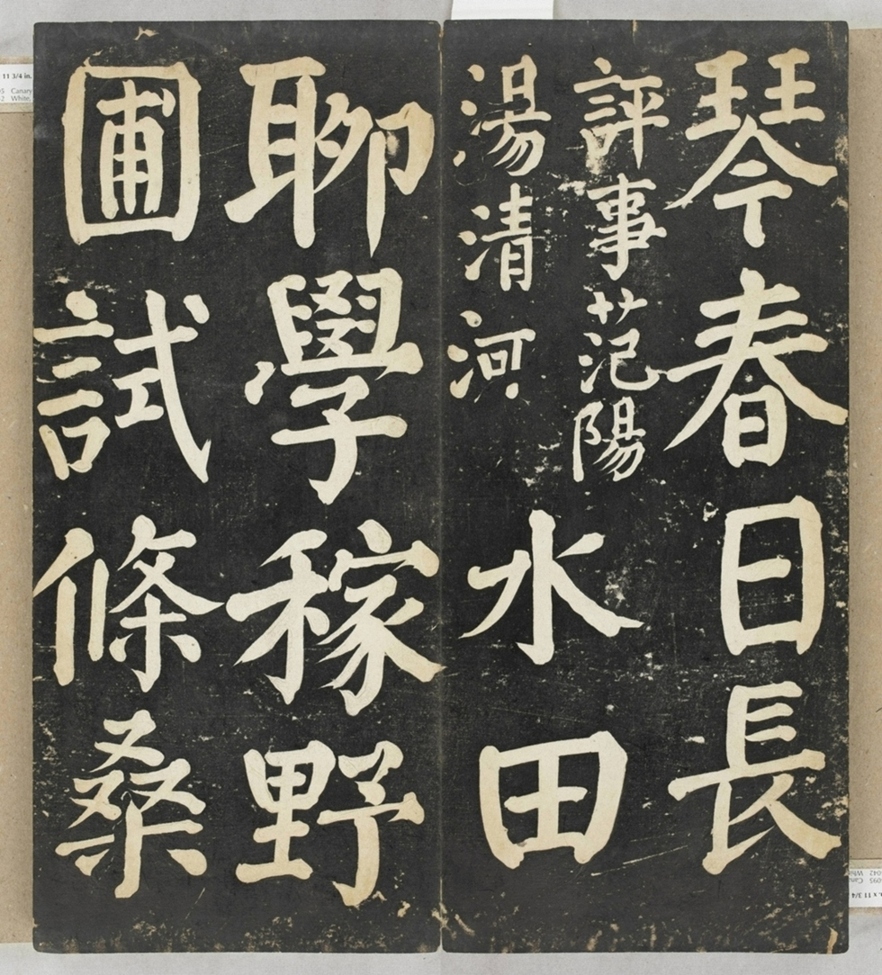 琴春日長
評事范陽
湯清河
水田
聊學稼野
圃試條桑
11 3/4 in.
Canary
White